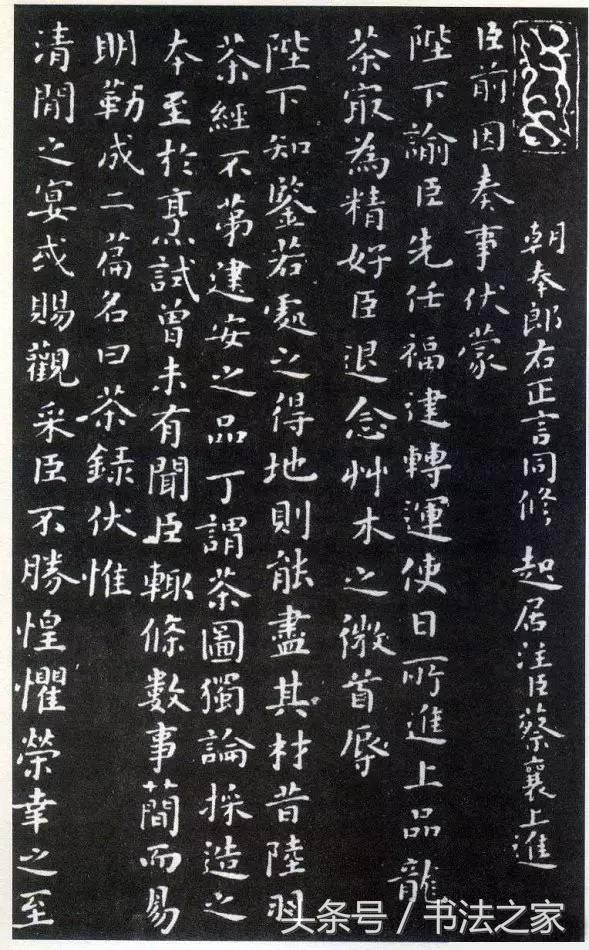 朝奉郎右正言同修起居注臣蔡襄上進
臣前因奏事伏蒙
陛下諭臣先任福建轉運使日所進上品龍
茶㝡為精好臣退念艸木之微首辱
陛下知鑒若處之得地則能盡其材昔陸羽
茶經不第建安之品丁謂茶圖獨論採造之
本至於烹試曾未有聞臣輙條數事簡而易
明勒成二篇名曰茶録伏惟
清閒之宴或賜觀采臣不勝惶懼榮幸之至
头条号／书法之家